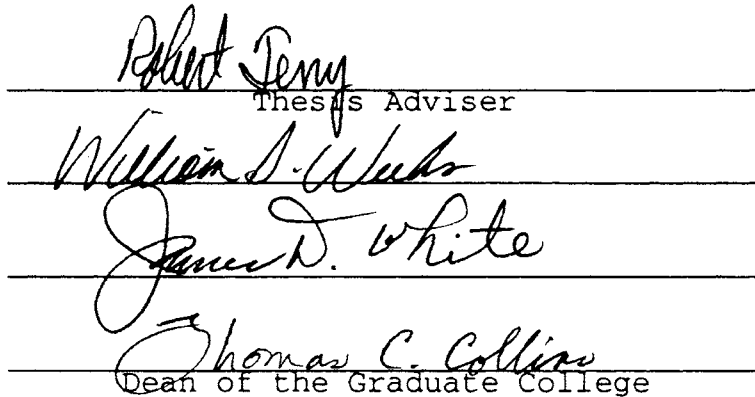 Robert Terry
Thesis Adviser
William D. Weeks
James D. White
Thomas C. Collins
Dean of the Graduate College